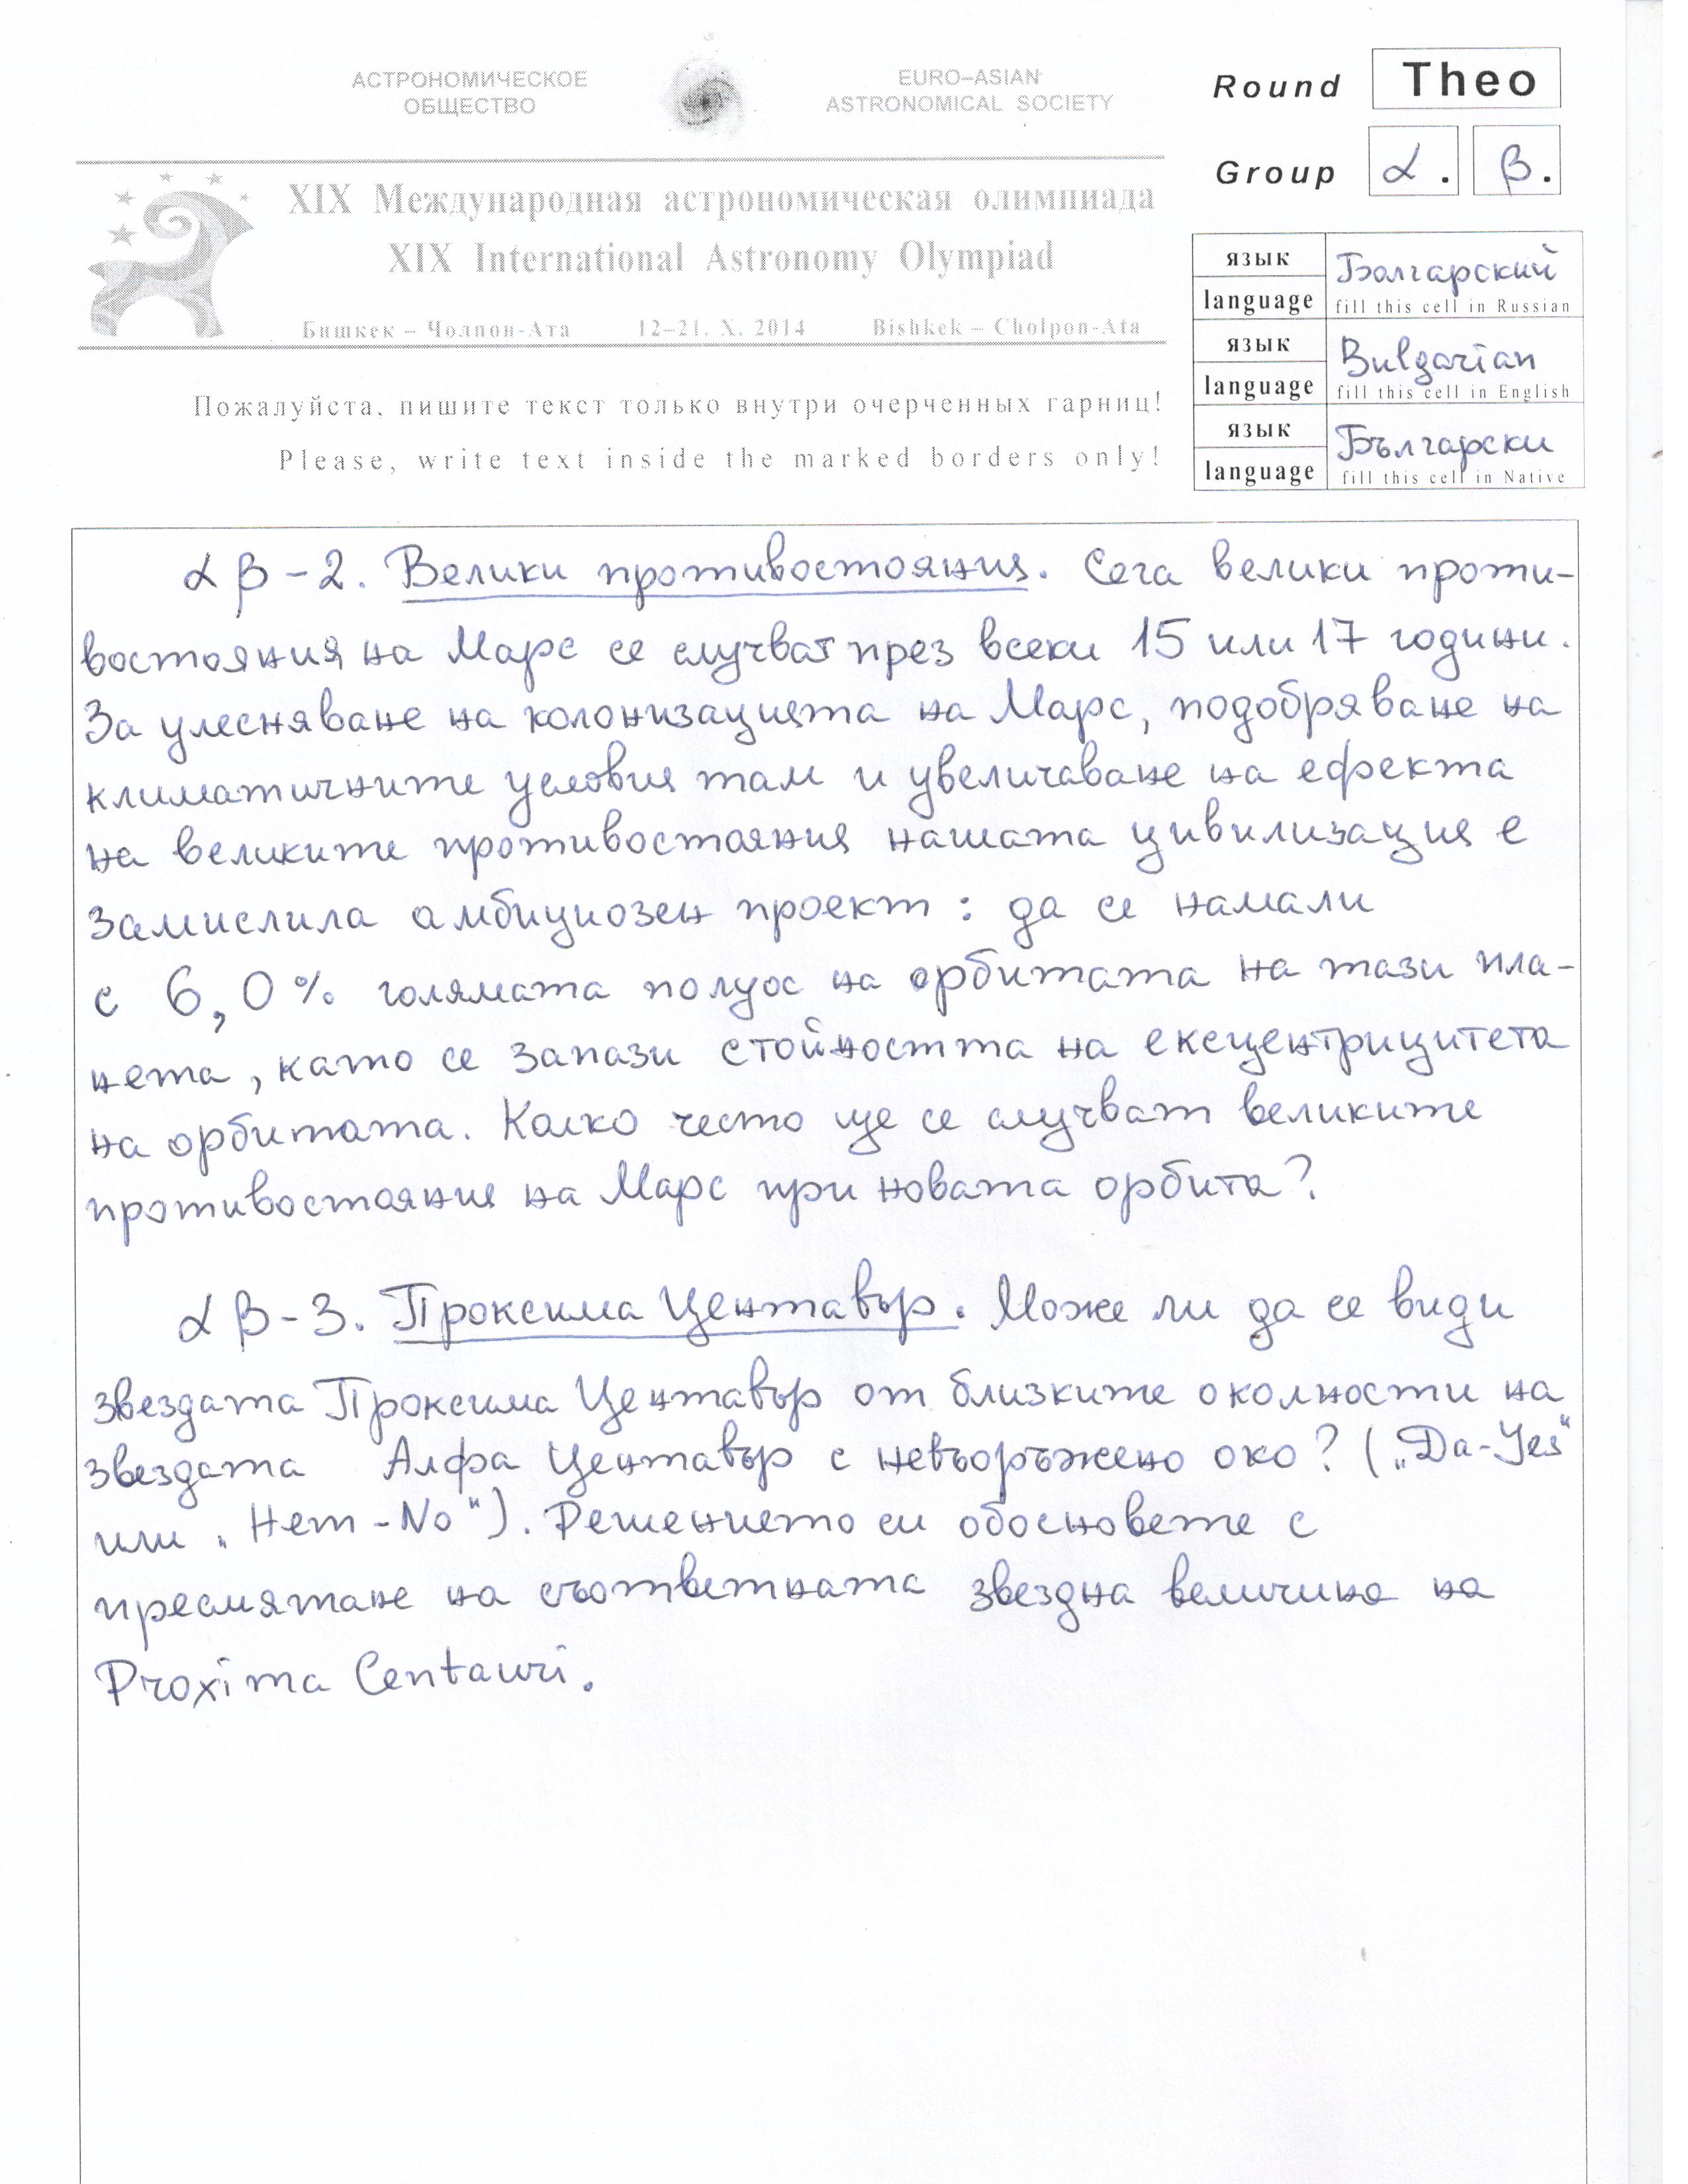 АСТРОНОМИЧЕСКОЕ
ОБЩЕСТВО
EURO–ASIAN
ASTRONOMICAL SOCIETY
Round Theo
Group α. β.
XIX Международная астрономическая олимпиада
XIX International Astronomy Olympiad
Бишкек – Чолпон-Ата 12–21. X. 2014 Bishkek – Cholpon-Ata
язык
language
Болгарский
fill this cell in Russian
язык
language
Bulgarian
fill this cell in English
язык
language
Български
fill this cell in Native
Пожалуйста, пишите текст только внутри очерченных гарниц!
Please, write text inside the marked borders only!
αβ-2. Велики противостояния. Сега велики проти-
востояния на Марс се случват през всеки 15 или 17 години.
За улесняване на колонизацията на Марс, подобряване на
климатичните условия там и увеличаване на ефекта
на великите противостояния нашата цивилизация е
замислила амбициозен проект: да се намали
с 6,0% голямата полуос на орбитата на тази пла-
нета, като се запази стойността на ексцентрицитета
на орбитата. Колко често ще се случват великите
противостояния на Марс при новата орбита?
αβ-3. Проксима Центавър. Може ли да се види
звездата Проксима Центавър от близките околности на
звездата Алфа Центавър с невъоръжено око? („Да-Yes"
или „Нет-No"). Решението си обосновете с
пресмятане на съответната звездна величина на
Proxima Centauri.